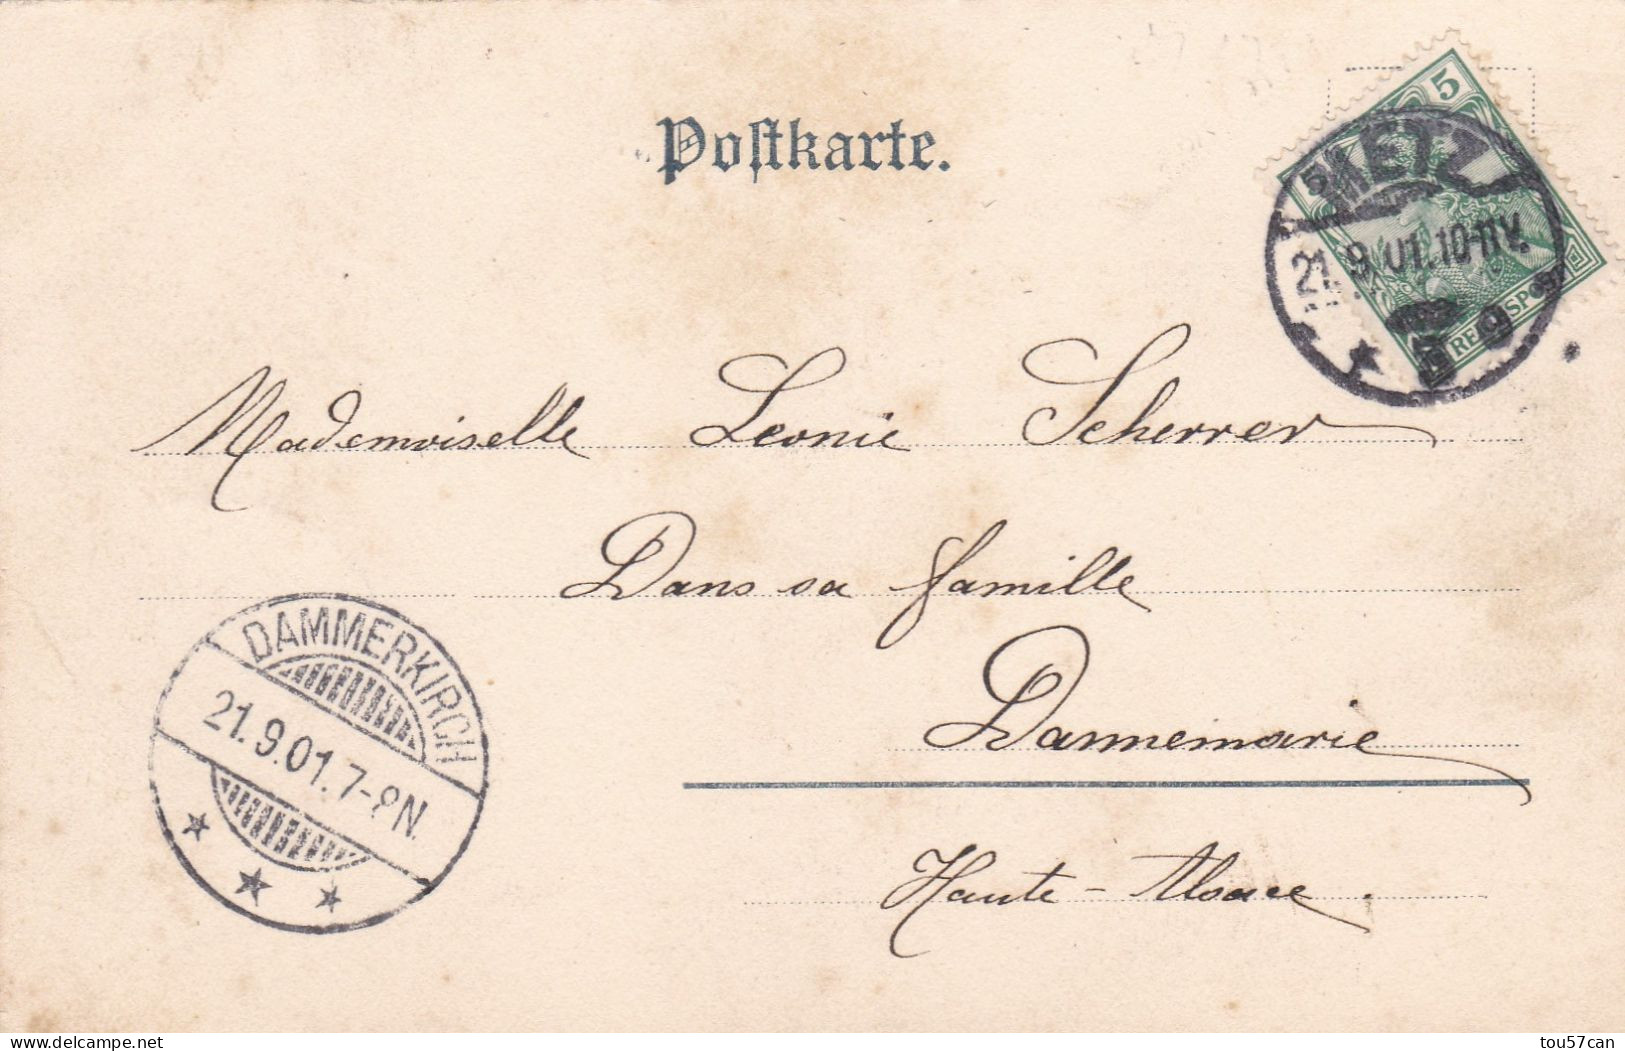 Postkarte.
5
5
METZ
21.9.01.10-11V.
REICHSPOST
Mademoiselle Leonie Scherrer
Dans sa famille
Dannemarie
Haute-Alsace.
DAMMERKIRCH
21.9.01.7-8N.
tou57can